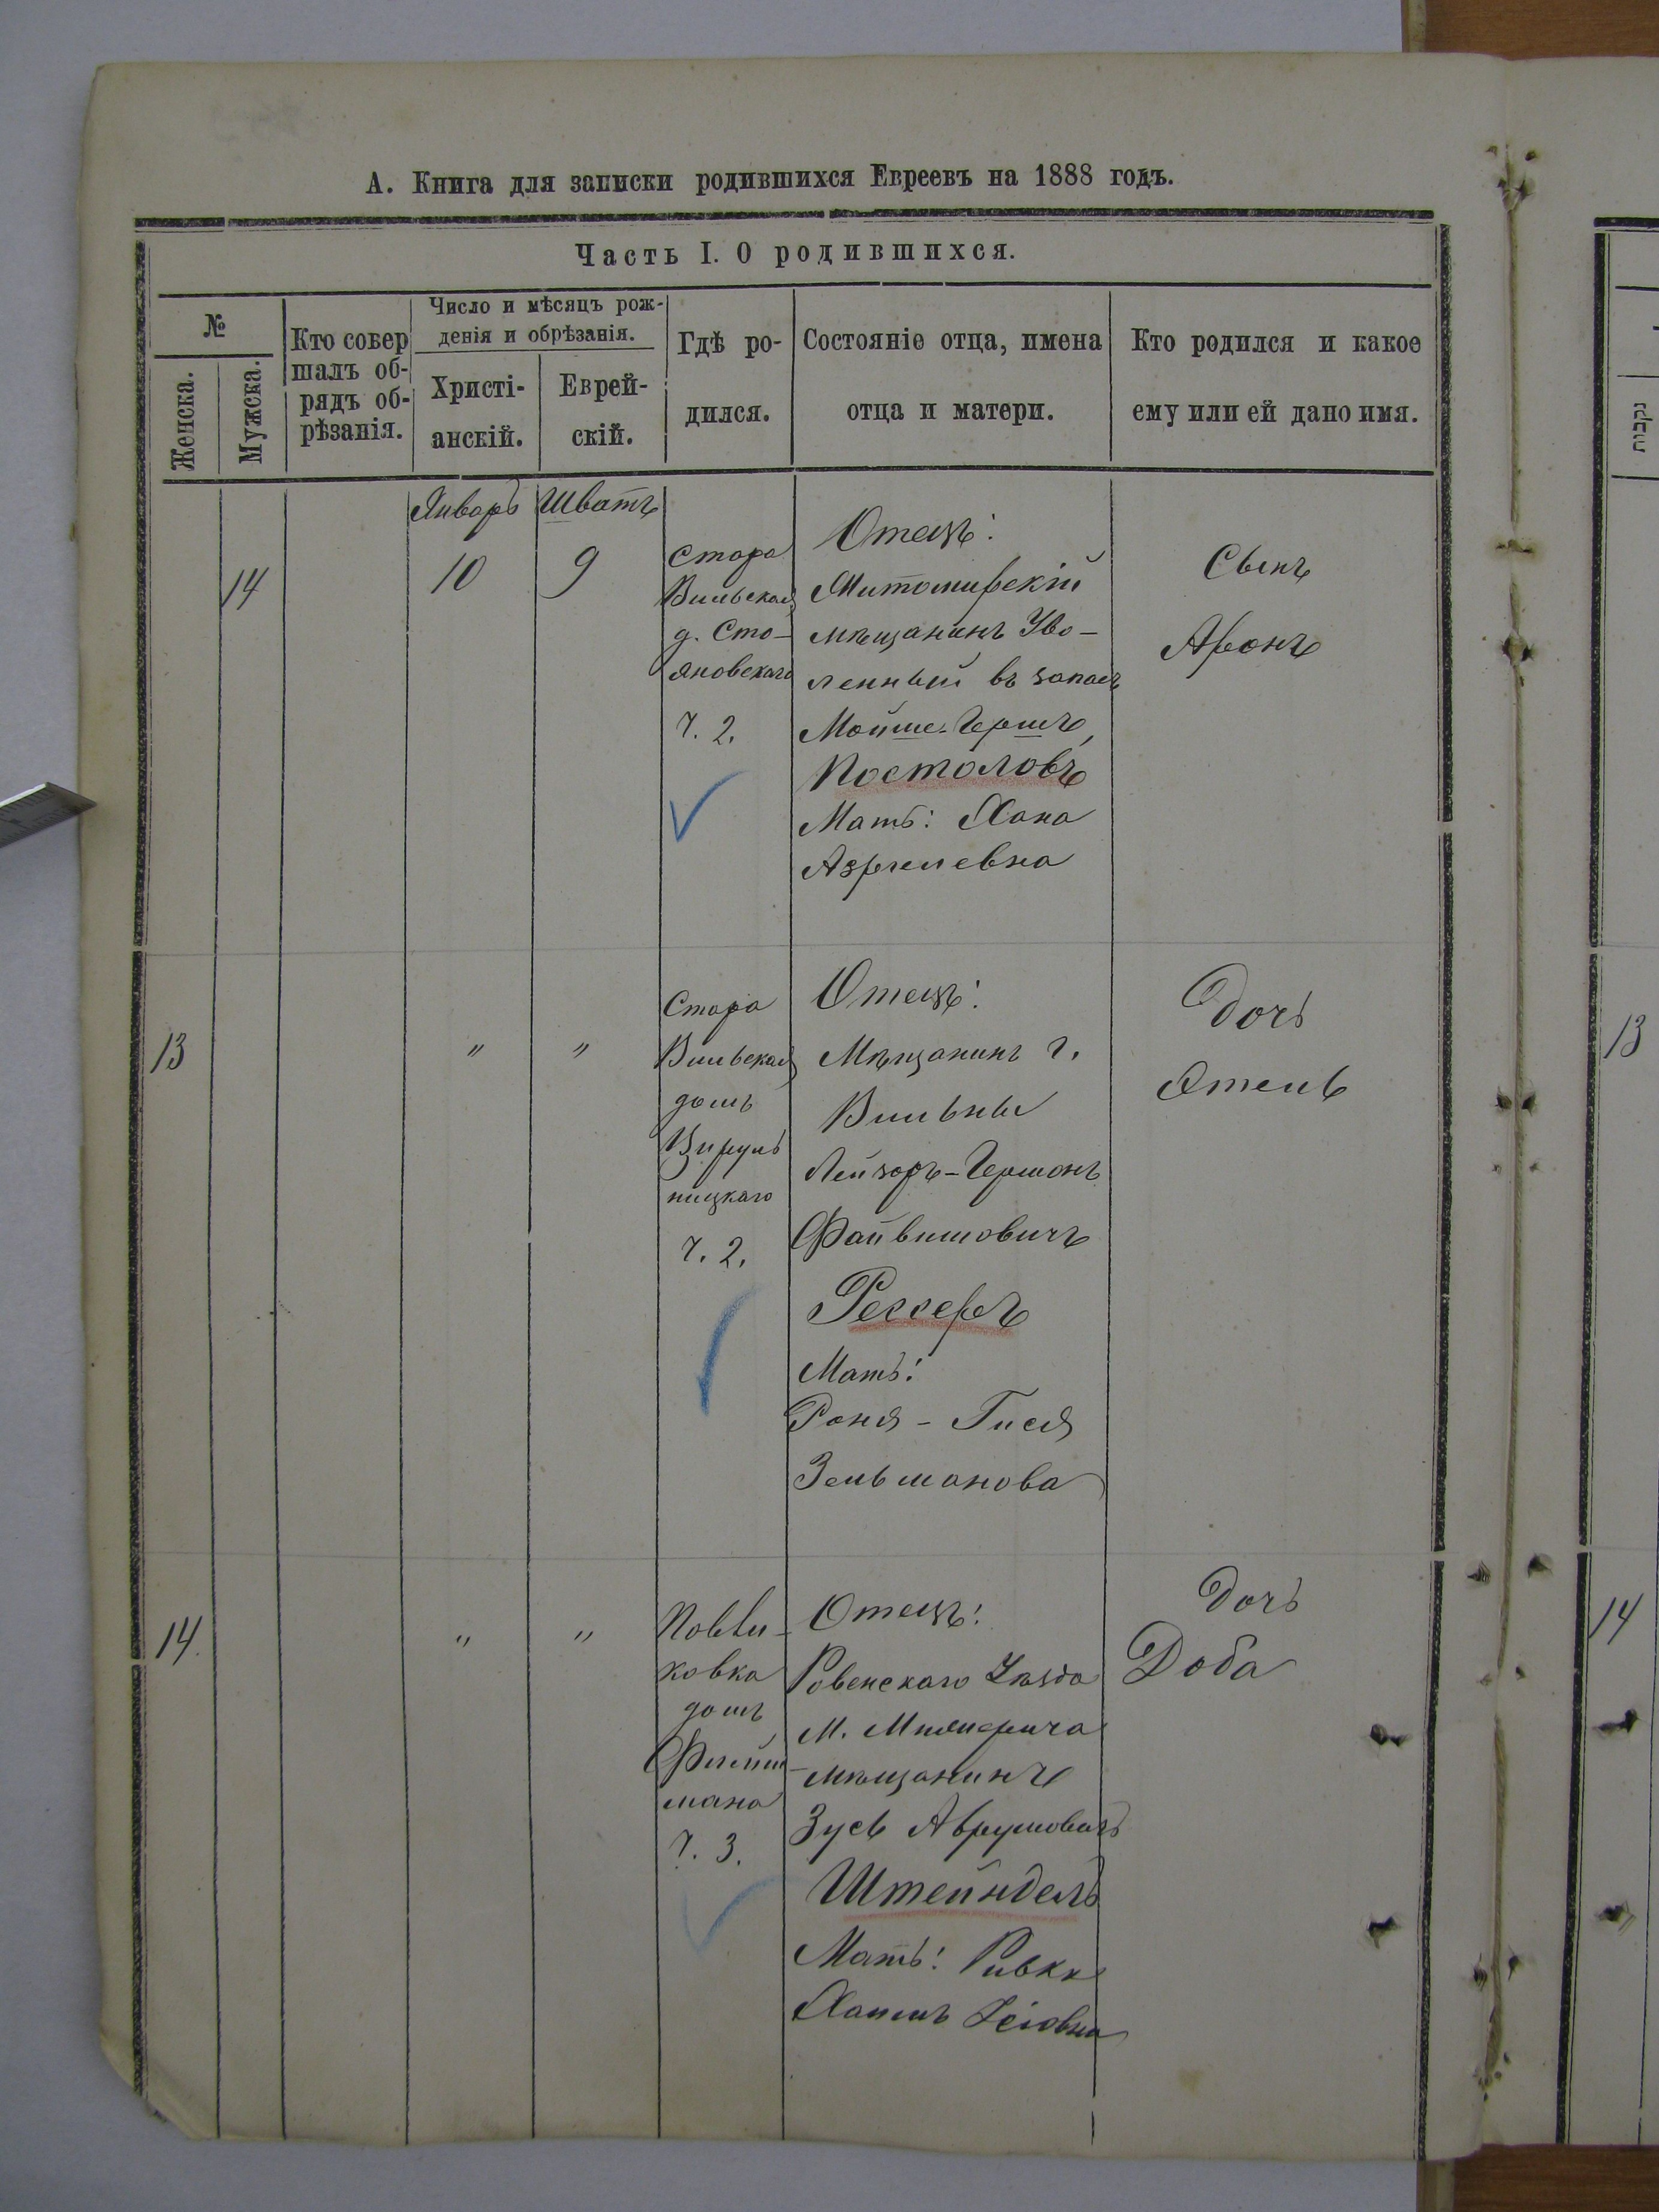 А. Книга для записки родившихся Евреевъ на 1888 годъ.
Часть I. О родившихся.
№
Женска.
Мужска.
Кто совер
шалъ об-
рядъ об-
рѣзанія.
Число и мѣсяцъ рож-
денія и обрѣзанія.
Христі-
анскій.
Еврей-
скій.
Гдѣ ро-
дился.
Состояніе отца, имена
отца и матери.
Кто родился и какое
ему или ей дано имя.
Январь
Шватъ
14
10
9
Стара
Вильская
д. Сто-
яновскаго
Ч. 2.
Отецъ:
Житомирскій
мѣщанинъ Уво-
ленный въ запасъ
Мойше-Гершъ
Постоловъ
Мать: Хана
Азрилевна
Сынъ
Аронъ
13
"
"
Стара
Вильская
домъ
Цируль
ницкаго
Ч. 2.
Отецъ:
Мѣщанинъ г.
Вильны
Лейзоръ-Гершонъ
Файвишовичъ
Рессеръ
Мать:
Роня-Гися
Зельманова
Дочь
Этель
13
14.
"
"
Павли-
ковка
домъ
мана
Ч. 3.
Отецъ:
Ровенскаго Уѣзда
М.
мѣщанинъ
Зусь Аврумовичъ
Штейндель
Мать: Ривка
Дочь
Доба
14
נקבות